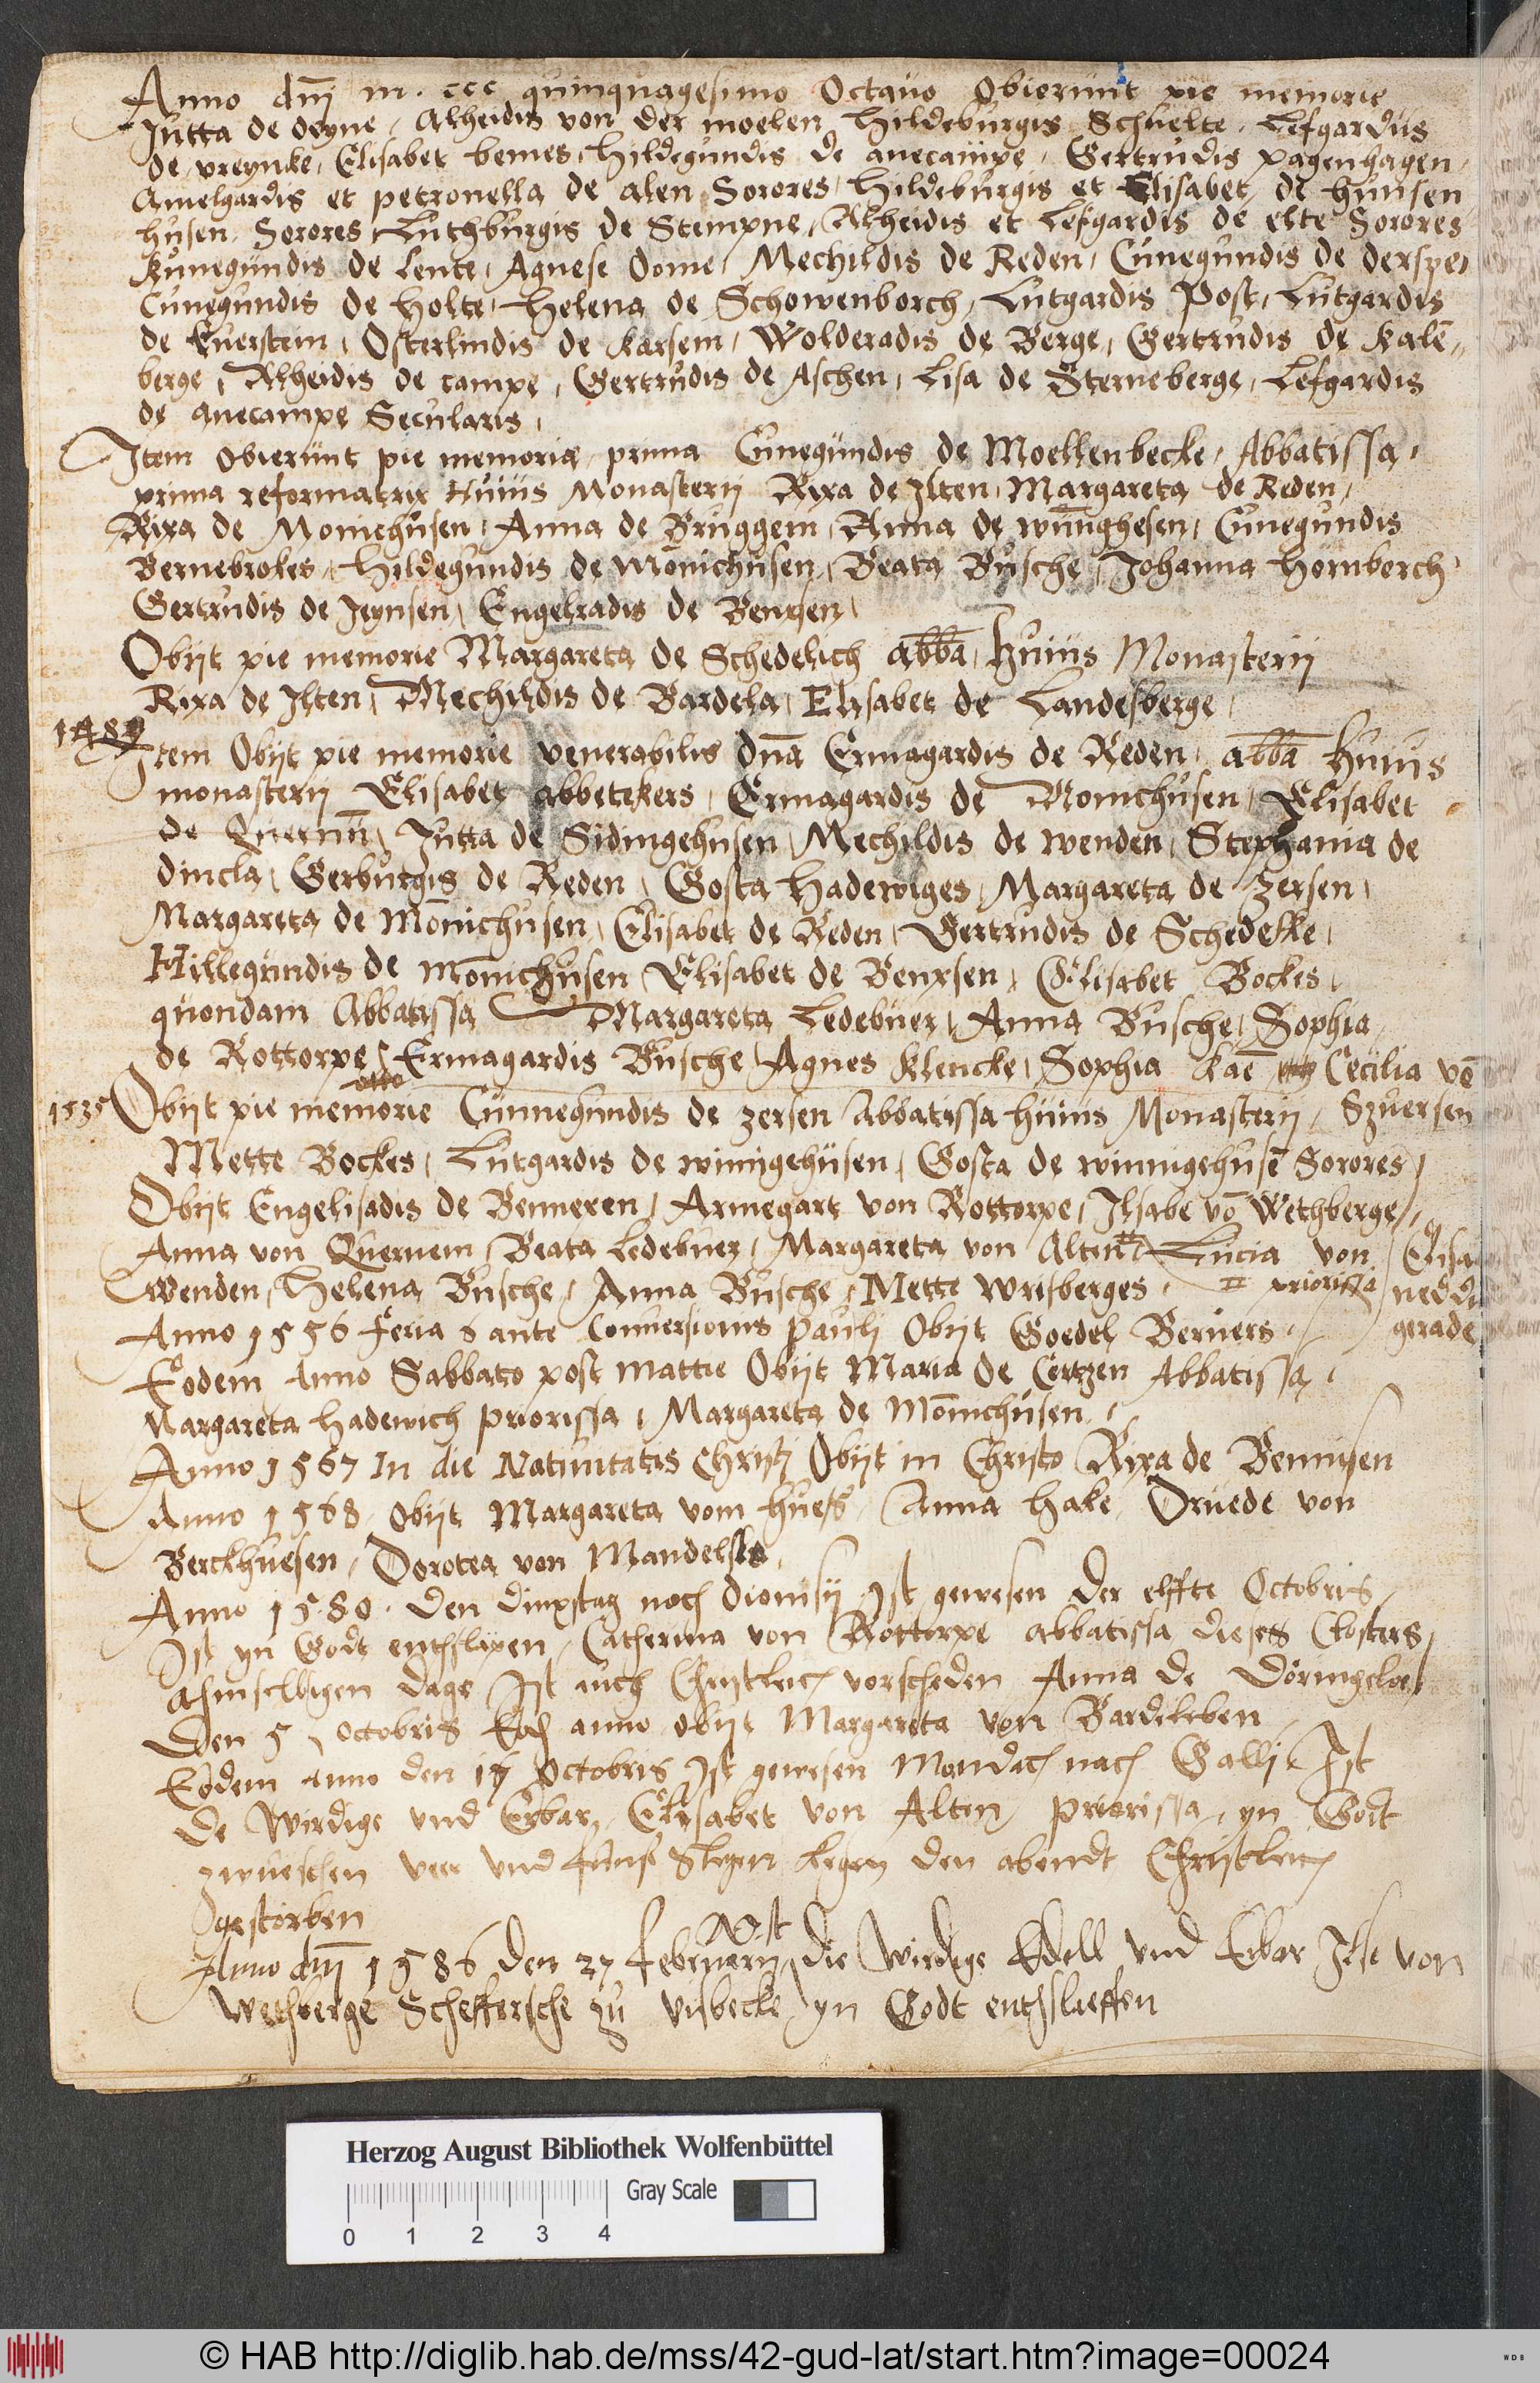 Anno dnī m. ccc quinquagesimo Octauo Obierunt pie memorie
Jutta de deyne, Alheidis von der moelen Hildeburgis Schuelte, Lefgardus
de vreynke, Elisabet bemes, Hildegundis de anecampe, Gertrudis pagenhagen,
Amelgardis et petronella de alen Sorores, Hildeburgis et Elisabet de hunsen
husen Sorores, Luthburgis de Stempne, Alheidis et Lefgardis de elte Sorores
Kunegundis de Lente, Agnese Dome, Mechildis de Reden, Cunegundis de derspe,
Cunegundis de Holte, Helena de Schowenborch, Lutgardis Post, Lutgardis
de Euerstein, Osterlindis de Karsem, Wolderadis de Berge, Gertrudis de Kalē„
berge, Alheidis de campe, Gertrudis de Aschen, Lisa de Sterneberge, Lefgardis
de anecampe Secularis,
Item Obierunt pie memorie, prima Cunegundis de Moellenbecke, Abbatissa,
prima reformatrix Huius Monasterij Rixa de Ilten, Margareta de Reden,
Rixa de Moniehusen, Anna de Bruggem, Anna de wunnghesen, Cunegundis
Bernebrokes, Hildegundis de Monichusen, Beata Busche, Johanna Hornberch,
Gertrudis de Jeynsen, Engelradis de Benxsen,
Obijt pie memorie Margareta de Schedelich abbā, Huius Monasterij
Rixa de Ilten, Mechildis de Bardela, Elisabet de Landesberge,
1489
Item Obijt pie memorie venerabilis dnā Ermagardis de Reden, abbā Huius
monasterij Elisabet abbetekers, Ermagardis de Monichusen, Elisabet
de Quernū, Jutta de Sidingehusen, Mechildis de wenden, Stephania de
dincla, Gerburgis de Reden, Gosta Hadewiges, Margareta de Zersen,
Margareta de Mōnichusen, Elisabet de Reden, Gertrudis de Schedelke,
Hillegundis de Mōnichusen Elisabet de Benxsen, Elisabet Bockes,
quondam Abbatissa Margareta Ledebuer, Anna Busche, Sophia
de Rottorpe, Ermagardis Busche, Agnes Klencke, Sophia Kaē Cecilia vō
1535 Obijt pie memorie Cunnegundis de zersen Abbatissa huius Monasterij, Szuersen
Mette Bockes, Lutgardis de winnigehusen, Gosta de winnigehusē Sorores,
Obijt Engelisadis de Benneren, Armegart von Rottorpe, Ilsabe vō Wethberge,
Anna von Quernem, Beata Ledebuer, Margareta von Alten, Lucia von Elisa
Wenden, Helena Busche, Anna Busche, Mette Wrisberges, priorissa
Anno 1556 feria 6 ante Conuersionis Pauli Obijt Goedel Berners, gerade
Eodem Anno Sabbato post Mattie Obijt Maria de Certzen Abbatissa,
Margareta Hadewich Priorissa, Margareta de Mōnichusen,
Anno 1567 In die Natiuitatis Christi Obijt in Christo Rixa de Bennisen
Anno 1568 Obijt Margareta vom Huess, Anna Hake, Druede von
Berckhuesen, Dorotea von Mandelslo,
Anno 1580. den dinxstag noch Dionisij Ist gewesen der elffte Octobris,
Ist yn Godt enthslapen, Catherina von Rottorpe abbatissa dieses Closters,
dage Ist auch Christlich vorscheden Anna de Döringeloe,
Den 5, Octobris anno obijt Margareta von Bardeleben
Eodem Anno den 17 Octobris Ist gewesen Mandach nach Galli, Ist
De Wirdige vnd Erbar, Elisabet von Alten, priorissa, yn Godt
zwueschen veer vnd funf den abendt Christlich
gestorben
Ao. Ist
Anno dnī 1586 den 27 februarij, die Wirdige Edell vnd Erbar Ilse von
Wethberge Scheffersche zu Visbecke yn Godt enthslieffen
Herzog August Bibliothek Wolfenbüttel
Gray Scale
0 1 2 3 4
© HAB http://diglib.hab.de/mss/42-gud-lat/start.htm?image=00024
WDB